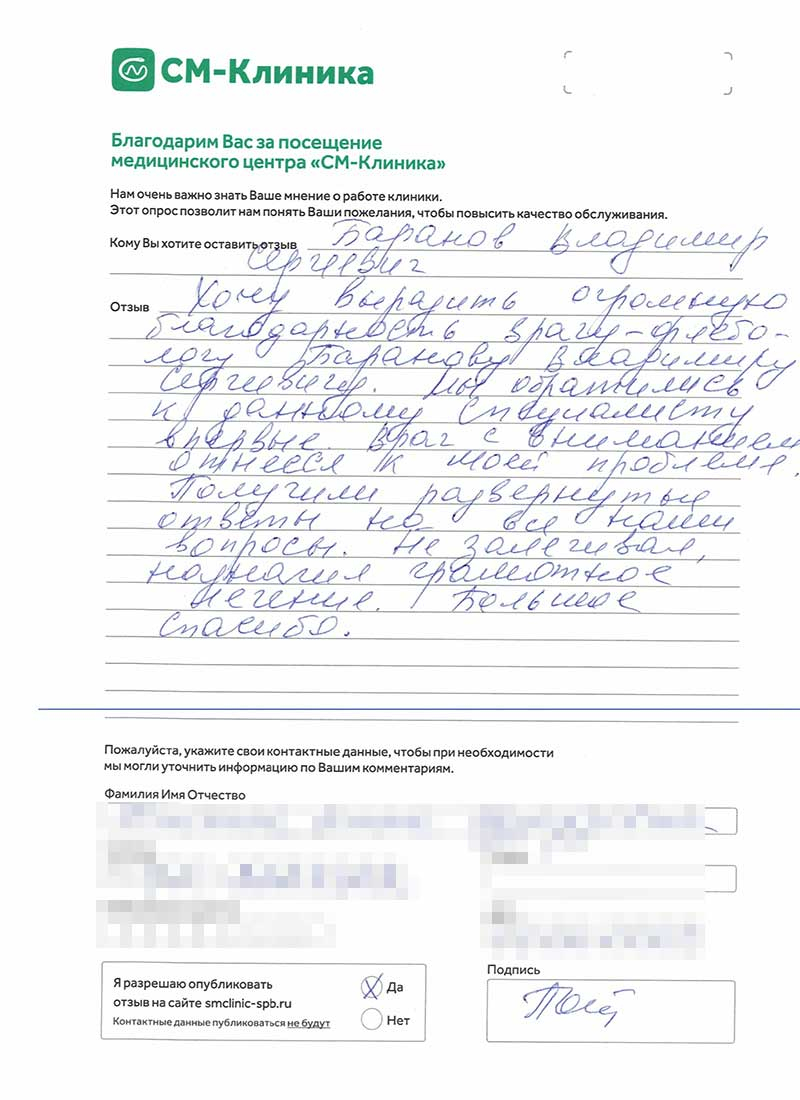 СМ-Клиника
Благодарим Вас за посещение
медицинского центра «СМ-Клиника»
Нам очень важно знать Ваше мнение о работе клиники.
Этот опрос позволит нам понять Ваши пожелания, чтобы повысить качество обслуживания.
Кому Вы хотите оставить отзыв Баранов Владимир
Сергеевич
Отзыв Хочу выразить огромную
благодарность врачу-флебо-
логу Баранову Владимиру
Сергеевичу. Мы обратились
к данному специалисту
впервые. Врач с вниманием
отнесся к моей проблеме.
Получили развернутые
ответы на все наши
вопросы. Не залечивал,
назначил грамотное
лечение. Большое
спасибо.
Пожалуйста, укажите свои контактные данные, чтобы при необходимости
мы могли уточнить информацию по Вашим комментариям.
Фамилия Имя Отчество
Подпись
Я разрешаю опубликовать
отзыв на сайте smclinic-spb.ru
Контактные данные публиковаться не будут
Да
Нет